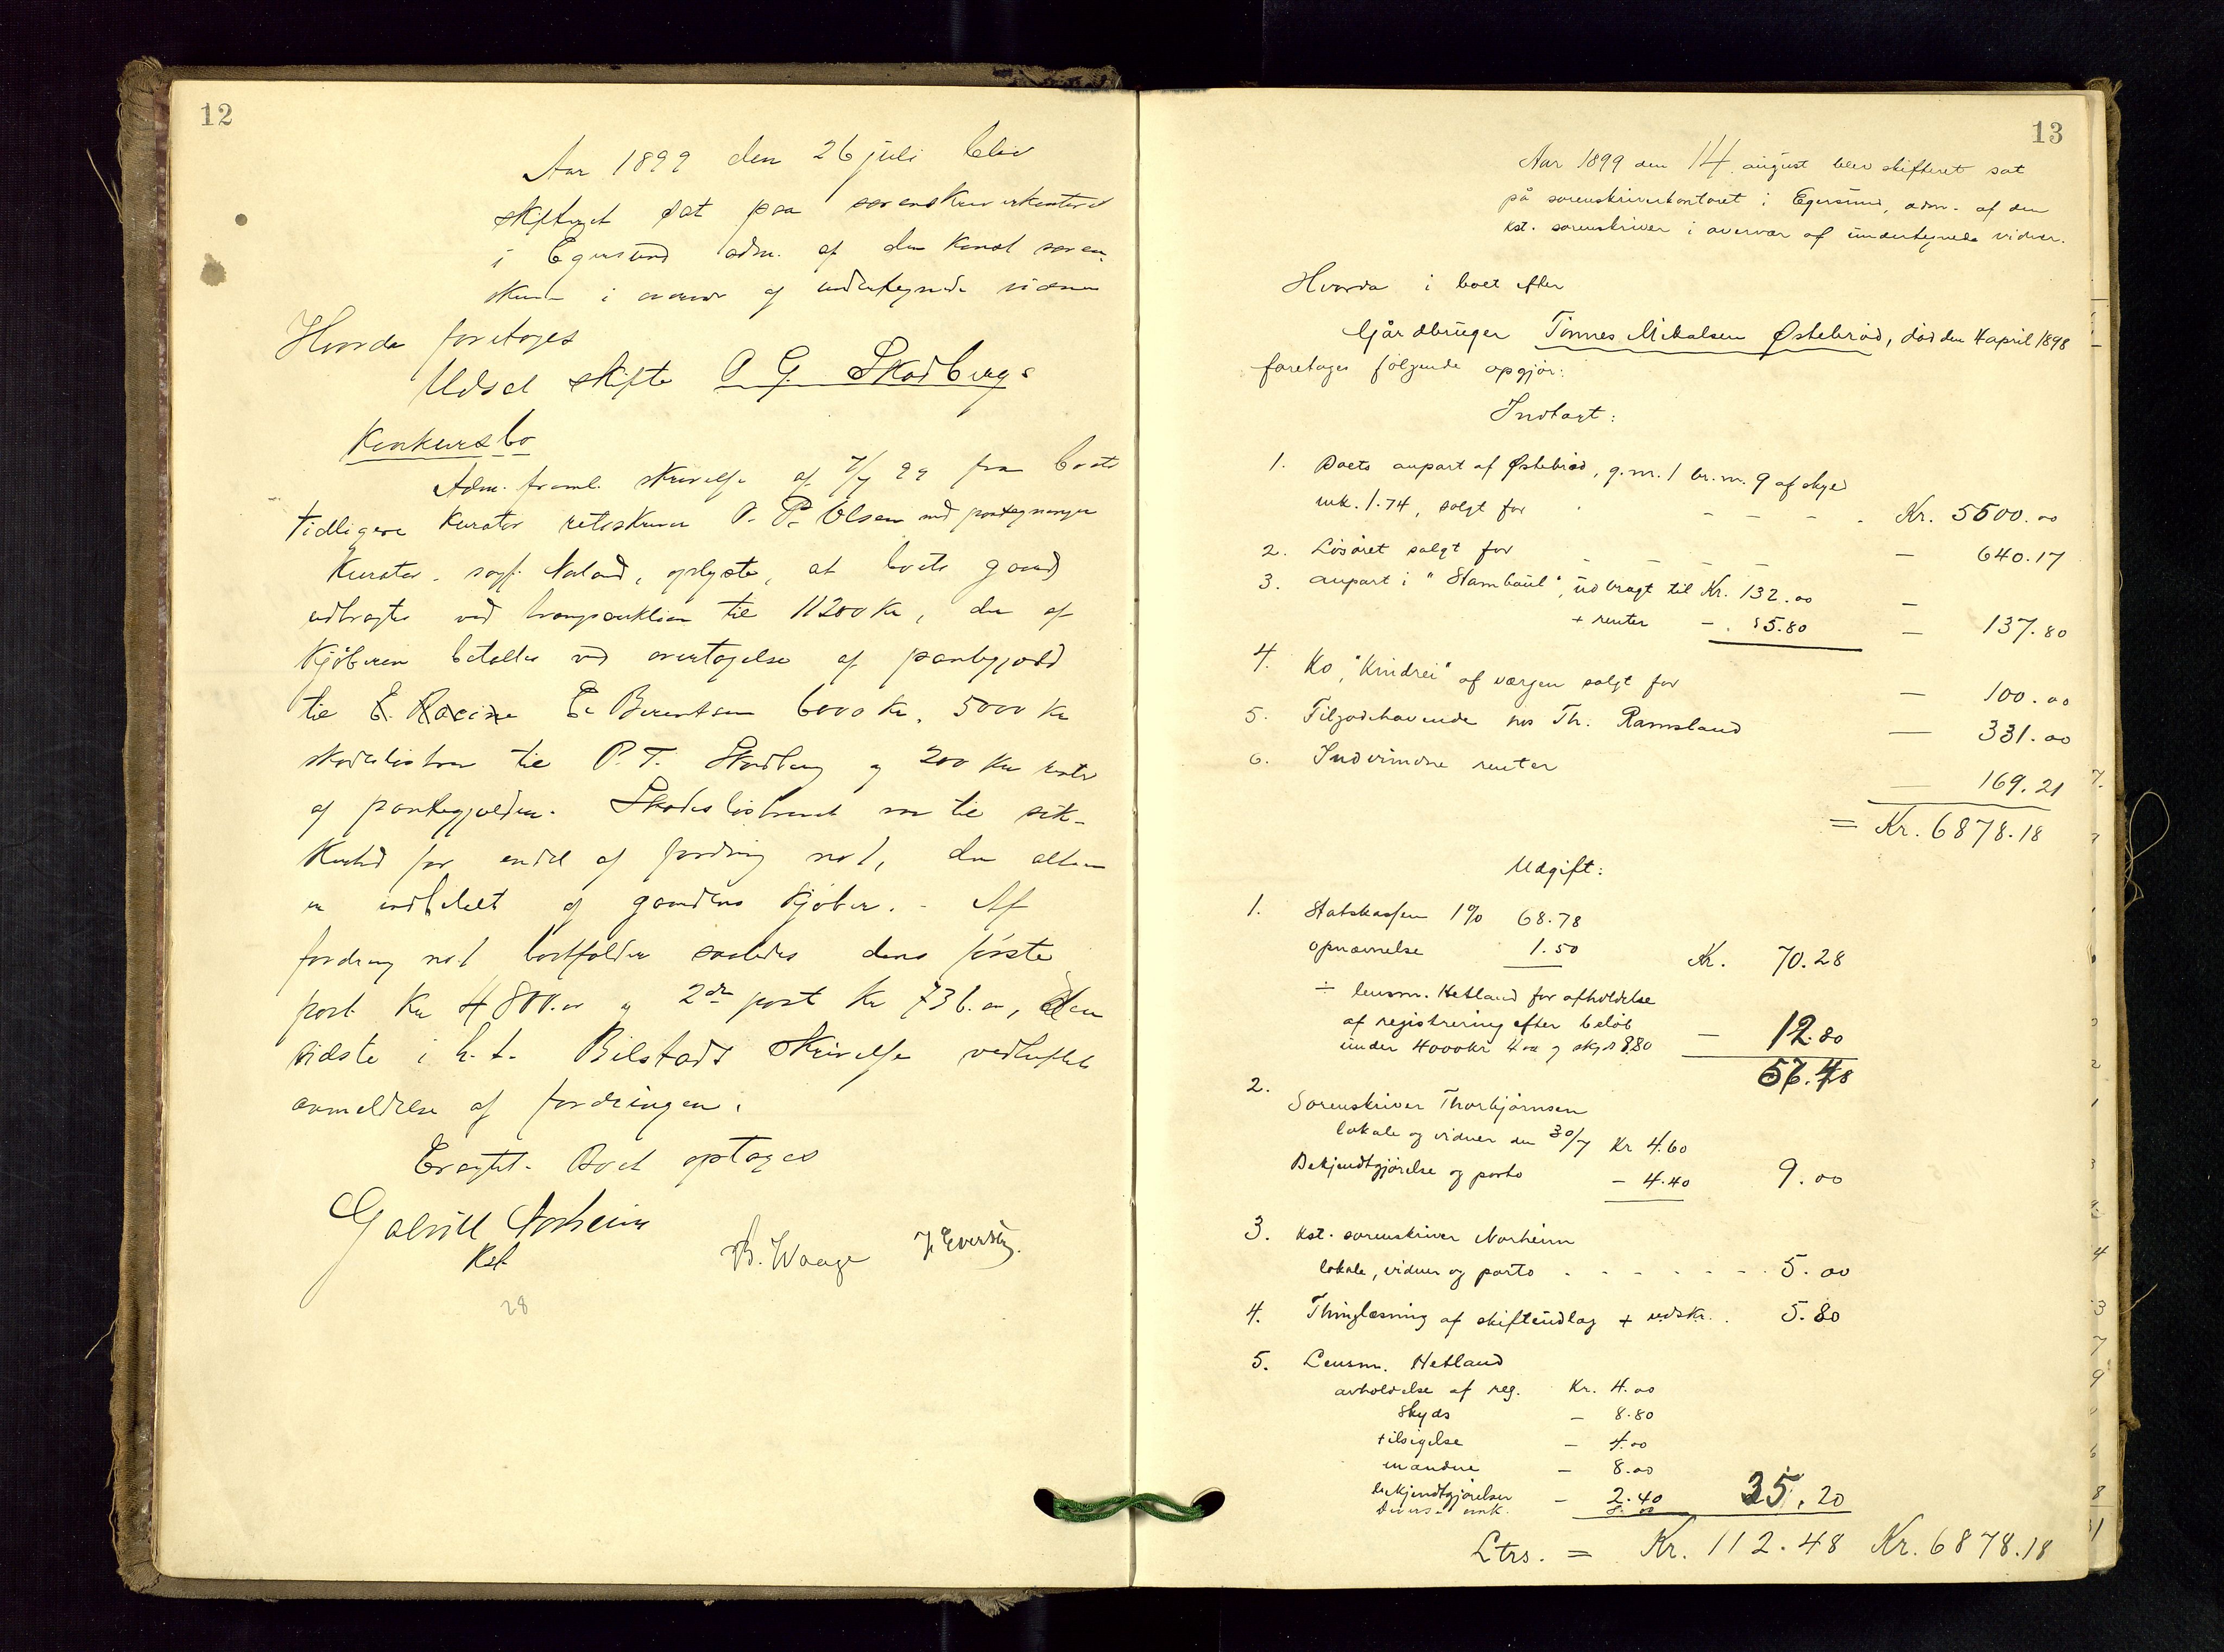 12
Aar 1899 den 26 juli blev
skifteret sat paa sorenskriverkontoret
i Egersund adm. af den Konst soren-
skriver i overvær af undertegnede vidner
Hvorda foretoges
Udsat skifte O G. Skadbergs
Konkursbo
Adm. freml. skrivelse af 7/7 99 fra boets
tidligere Kurator retsskriver O. P. Olsen med paategninger
Kurator, sagf. Aaland, oplyste, at boets gaard
udbragtes ved tvangsauktion til 11200 Kr, der af
Kjøberen betaltes ved overtagelse af pantegjæld
til E. Racine E. Berentsen 6000 Kr. 5000 Kr
skadesløsbrev til P. T. Skadberg og 200 Kr rester
af pantegjælden. Skadesløsbrevet var til sik-
kerhed for endel af fordring no 1, der altsaa
er indbetalt af gaardens Kjøber. - Af
fordring no 1 bortfalder saaledes dens første
post Kr 4800.00 og 2den post Kr 736.00, den
sidste i h. t. Bilstads skrivelse vedheftet
anmeldelse af fordringen.
Eragtet. Boet optages
Gabriel Norheim
Kst
B. Waage J. Eversen.
28
13
Aar 1899 den 14. august blev skifteret sat
på sorenskriverkontoret i Egersund, adm. af den
kst. sorenskriver i overvær af undertegnede vidner.
Hvorda i boet efter
Gårdbruger Tønnes Mikalsen Østebrød, død den 4 april 1898
foretoges følgende opgjør:
Indtægt:
1. Boets anpart af Østebrød, g.nr. 1 br.nr. 9 af skyld
mk. 1.74, solgt for - - - - Kr. 5500.00
2. Løsøret solgt for - - - - — 640.17
3. Anpart i "Stambaul", udbragt til Kr. 132.00 —
+ renter - 5.80 — 137.80
4. Ko, "Krindrei" af værgen solgt for — 100.00
5. Tilgodehavende hos Th. Ramsland — 331.00
6. Indvundne renter — 169.21
= Kr. 6878.18
Udgift:
1. Statskassen 1% 68.78
opnævnelse 1.50 Kr. 70.28
÷ lensm. Hetland for afholdelse
af registrering efter beløb
under 4000 kr 4.00 og skyds 8.80 — 12.80
57.48
2. Sorenskriver Thorbjørnsen
lokale og vidner den 30/7 Kr 4.60
Bekjendtgjørelse og porto - 4.40 9.00
3. Kst. sorenskriver Norheim
lokale, vidner og porto - - - - - - 5.00
4. Thinglæsning af skifteudlæg + udskr. . 5.80
5. Lensm. Hetland
avholdelse af reg. Kr. 4.00
Skyds - 8.80
tilsigelse - 4.00
mændene - 8.00
bekjendtgjørelser - 2.40 35.20
Diverse omk. 8.00
Ltrs. = Kr. 112.48 Kr. 6878.18